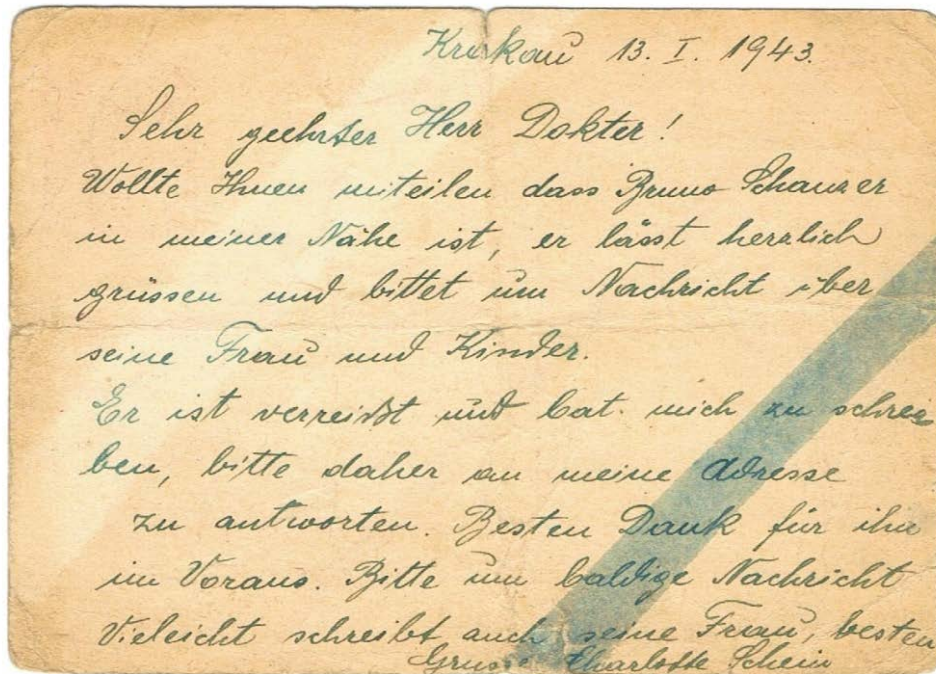 Krakau 13. I. 1943.
Sehr geehrter Herr Dokter!
Wollte Ihnen miteilen dass Bruno Schanzer
in meiner Nähe ist, er lässt herzlich
grüssen und bittet um Nachricht über
seine Frau und Kinder.
Er ist verreißt und bat. mich zu schrei
ben, bitte daher an meine Adresse
zu antworten. Besten Dank für ihn
im Voraus. Bitte um baldige Nachricht
Vieleicht schreibt auch seine Frau, besten
Grusse Charlotte Schein